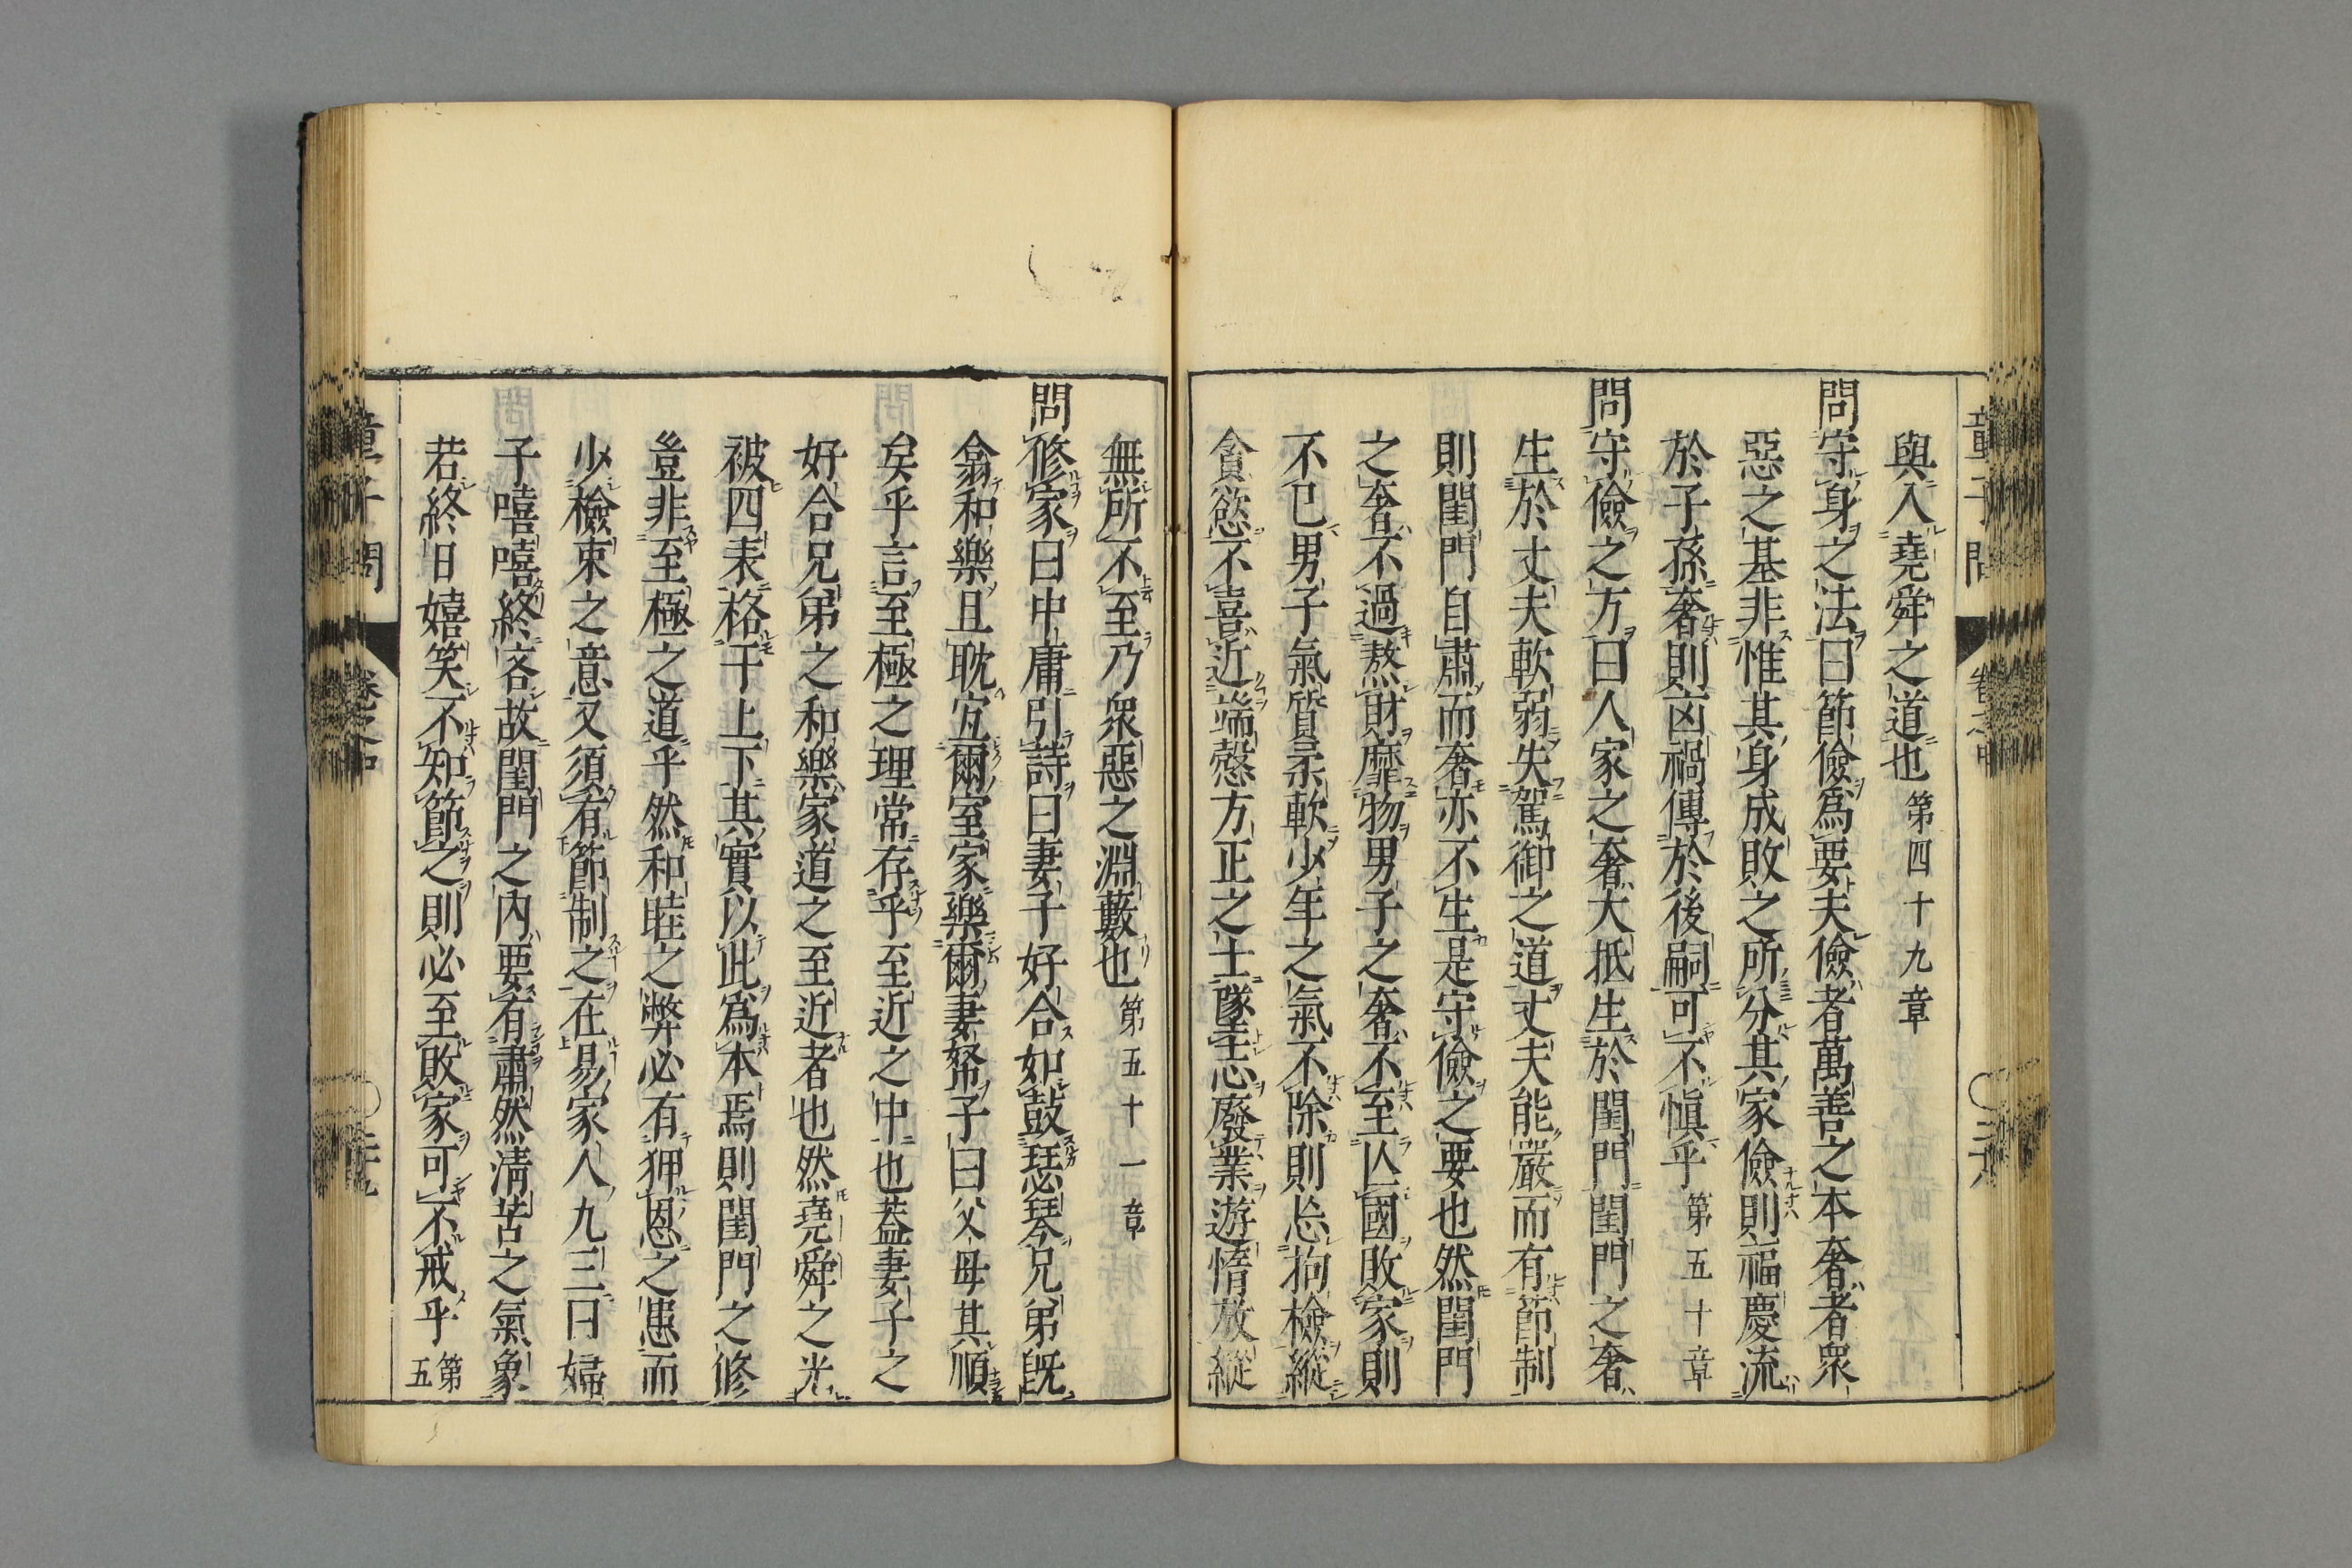 與入堯舜之道也 第四十九章
問守身之法曰節儉爲要夫儉者萬善之本奢者衆
惡之基非惟其身成敗之所分其家儉則福慶流
於子孫奢則凶禍傳於後嗣可不愼乎 第五十章
問守儉之方曰人家之奢大抵生於閨門閨門之奢
生於丈夫軟弱失駕御之道丈夫能嚴而有節制
則閨門自肅而奢亦不生是守儉之要也然閨門
之奢不過熬財靡物男子之奢不至亾國敗家則
不已男子氣質柔軟少年之氣不除則忩拘檢縱
貪慾不喜近端慤方正之士墜志廢業遊惰放縱
無所不至乃衆惡之淵藪也 第五十一章
問修家曰中庸引詩曰妻子好合如鼓瑟琴兄弟旣
翕和樂且耽宜爾室家樂爾妻帑子曰父母其順
矣乎言至極之理常存乎至近之中也蓋妻子之
好合兄弟之和樂家道之至近者也然堯舜之光
被四表格于上下其實以此爲本焉則閨門之修
豈非至極之道乎然和睦之弊必有狎恩之患而
少檢束之意又須有節制之在易家人九三曰婦
子嘻嘻終吝故閨門之內要有肅然淸苦之氣象
若終日嬉笑不知節之則必至敗家可不戒乎 第五
童子問 卷之中
童子問 卷之中